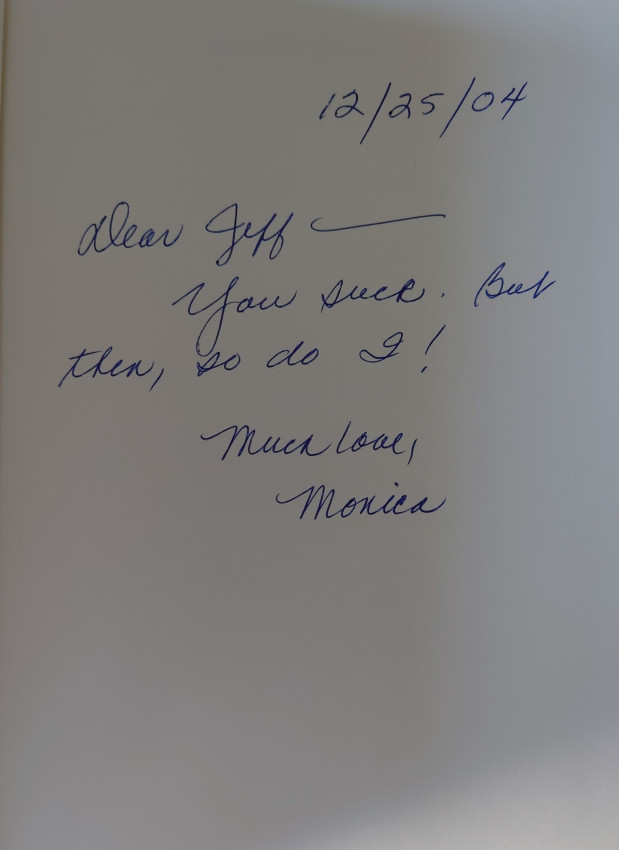 12/25/04
Dear Jeff —
You suck. But
then, so do I!
Much love,
Monica